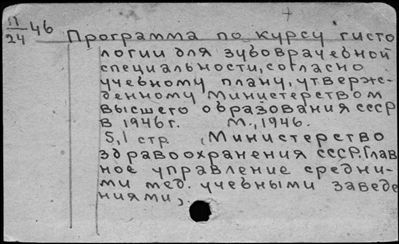 11/24 46 Программа по курсу гисто
логии для зубоврачебной
специальности, согласно
учебному плану, утверж-
денному Министерством
высшего образования СССР
в 1946 г. М., 1946.
5,1 стр. (Министерство
здравоохранения СССР. Глав
ное управление средни-
ми мед. учебными заведе
ниями)